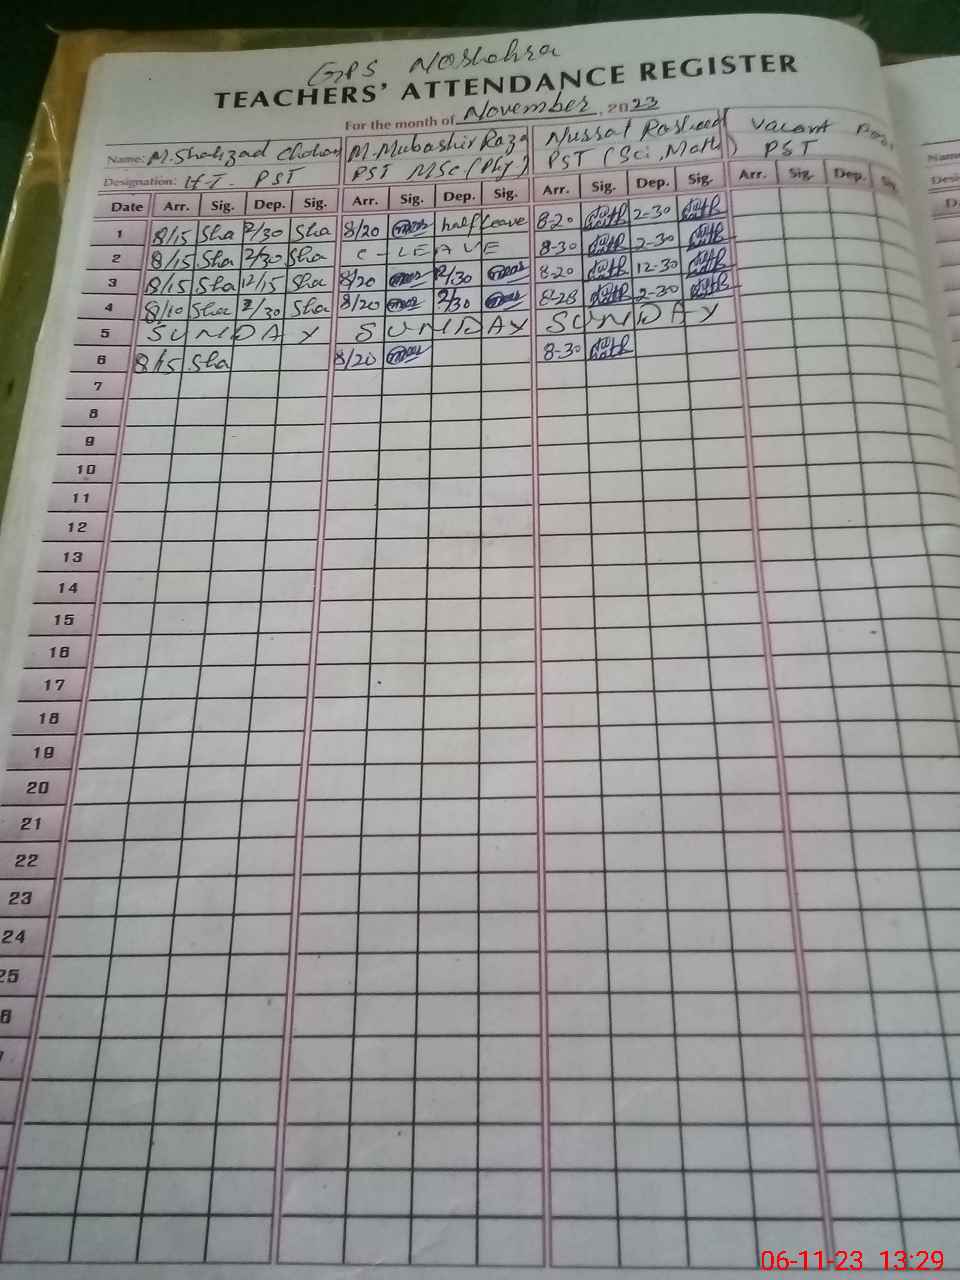 GPS Noshahra
TEACHERS' ATTENDANCE REGISTER
For the month of November, 2023
Name: M. Shahzad Chohan M. Mubashir Raza Nussat Rasheed Vacant Post
Designation: H-T- PST PST MSc (Phy) PST (Sci, Math) PST
Date Arr. Sig. Dep. Sig. Arr. Sig. Dep. Sig. Arr. Sig. Dep. Sig. Arr. Sig. Dep. Sig.
1 8/15 Sha 2/30 Sha 8/20 half leave 8-20 2-30
2 8/15 Sha 2/30 Sha C-LEAVE 8-30 2-30
3 8/15 Sha 12/15 Sha 8/20 12/30 8-20 12-30
4 8/10 Sha 2/30 Sha 8/20 2/30 8-28 2-30
5 SUNDAY SUNDAY SUNDAY
6 8/15 Sha 8/20 8-30
7
8
9
10
11
12
13
14
15
16
17
18
19
20
21
22
23
24
25
6
Name
Desi
D
06-11-23 13:29